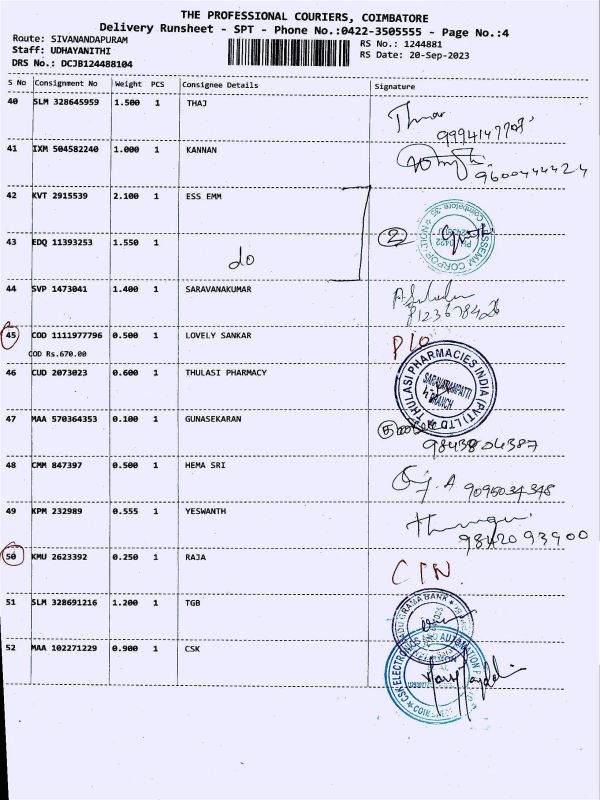 THE PROFESSIONAL COURIERS, COIMBATORE
Delivery Runsheet - SPT - Phone No.:0422-3505555 - Page No.:4
Route: SIVANANDAPURAM
RS No.: 1244881
Staff: UDHAYANITHI
RS Date: 20-Sep-2023
DRS No.: DCJB124488104
S No Consignment No Weight PCS Consignee Details Signature
40 SLM 328645959 1.500 1 THAJ
41 IXM 504582240 1.000 1 KANNAN
9600444424
42 KVT 2915539 2.100 1 ESS EMM
43 EDQ 11393253 1.550 1
do
2
44 SVP 1473041 1.400 1 SARAVANAKUMAR
8123678426
45 COD 1111977796 0.500 1 LOVELY SANKAR
COD Rs.670.00
46 CUD 2073023 0.600 1 THULASI PHARMACY
THULASI PHARMACIES INDIA (PVT) LTD
SARAVANAMPATTI
BRANCH
47 MAA 570364353 0.100 1 GUNASEKARAN
9843804387
48 CMM 847397 0.500 1 HEMA SRI
9095034348
49 KPM 232989 0.555 1 YESWANTH
9842093900
50 KMU 2623392 0.250 1 RAJA
51 SLM 328691216 1.200 1 TGB
52 MAA 102271229 0.900 1 CSK